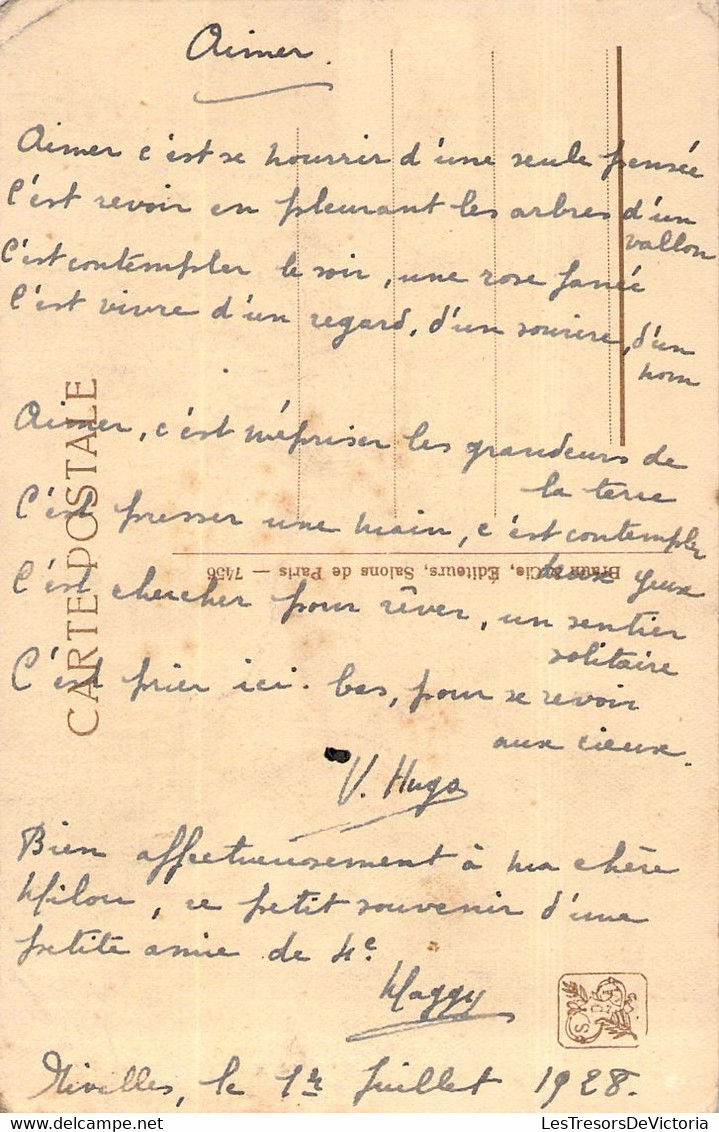 Aimer.
Aimer c'est se nourrir d'une seule pensée
C'est revoir en pleurant les arbres d'un
vallon
C'est contempler le soir, une rose fanée
C'est vivre d'un regard, d'un sourire, d'un
nom
Aimer, c'est mépriser les grandeurs de
la terre
C'est presser une main, c'est contempler
deux yeux
C'est chercher pour rêver, un sentier
solitaire
C'est prier ici-bas, pour se revoir
aux cieux.
V. Hugo
Bien affectueusement à ma chère
Milou, ce petit souvenir d'une
petite amie de 4e.
Maggy
Nivelles, le 1er Juillet 1928.
CARTE POSTALE
Braun & Cie, Éditeurs, Salons de Paris — 7456
LesTresorsDeVictoria.com